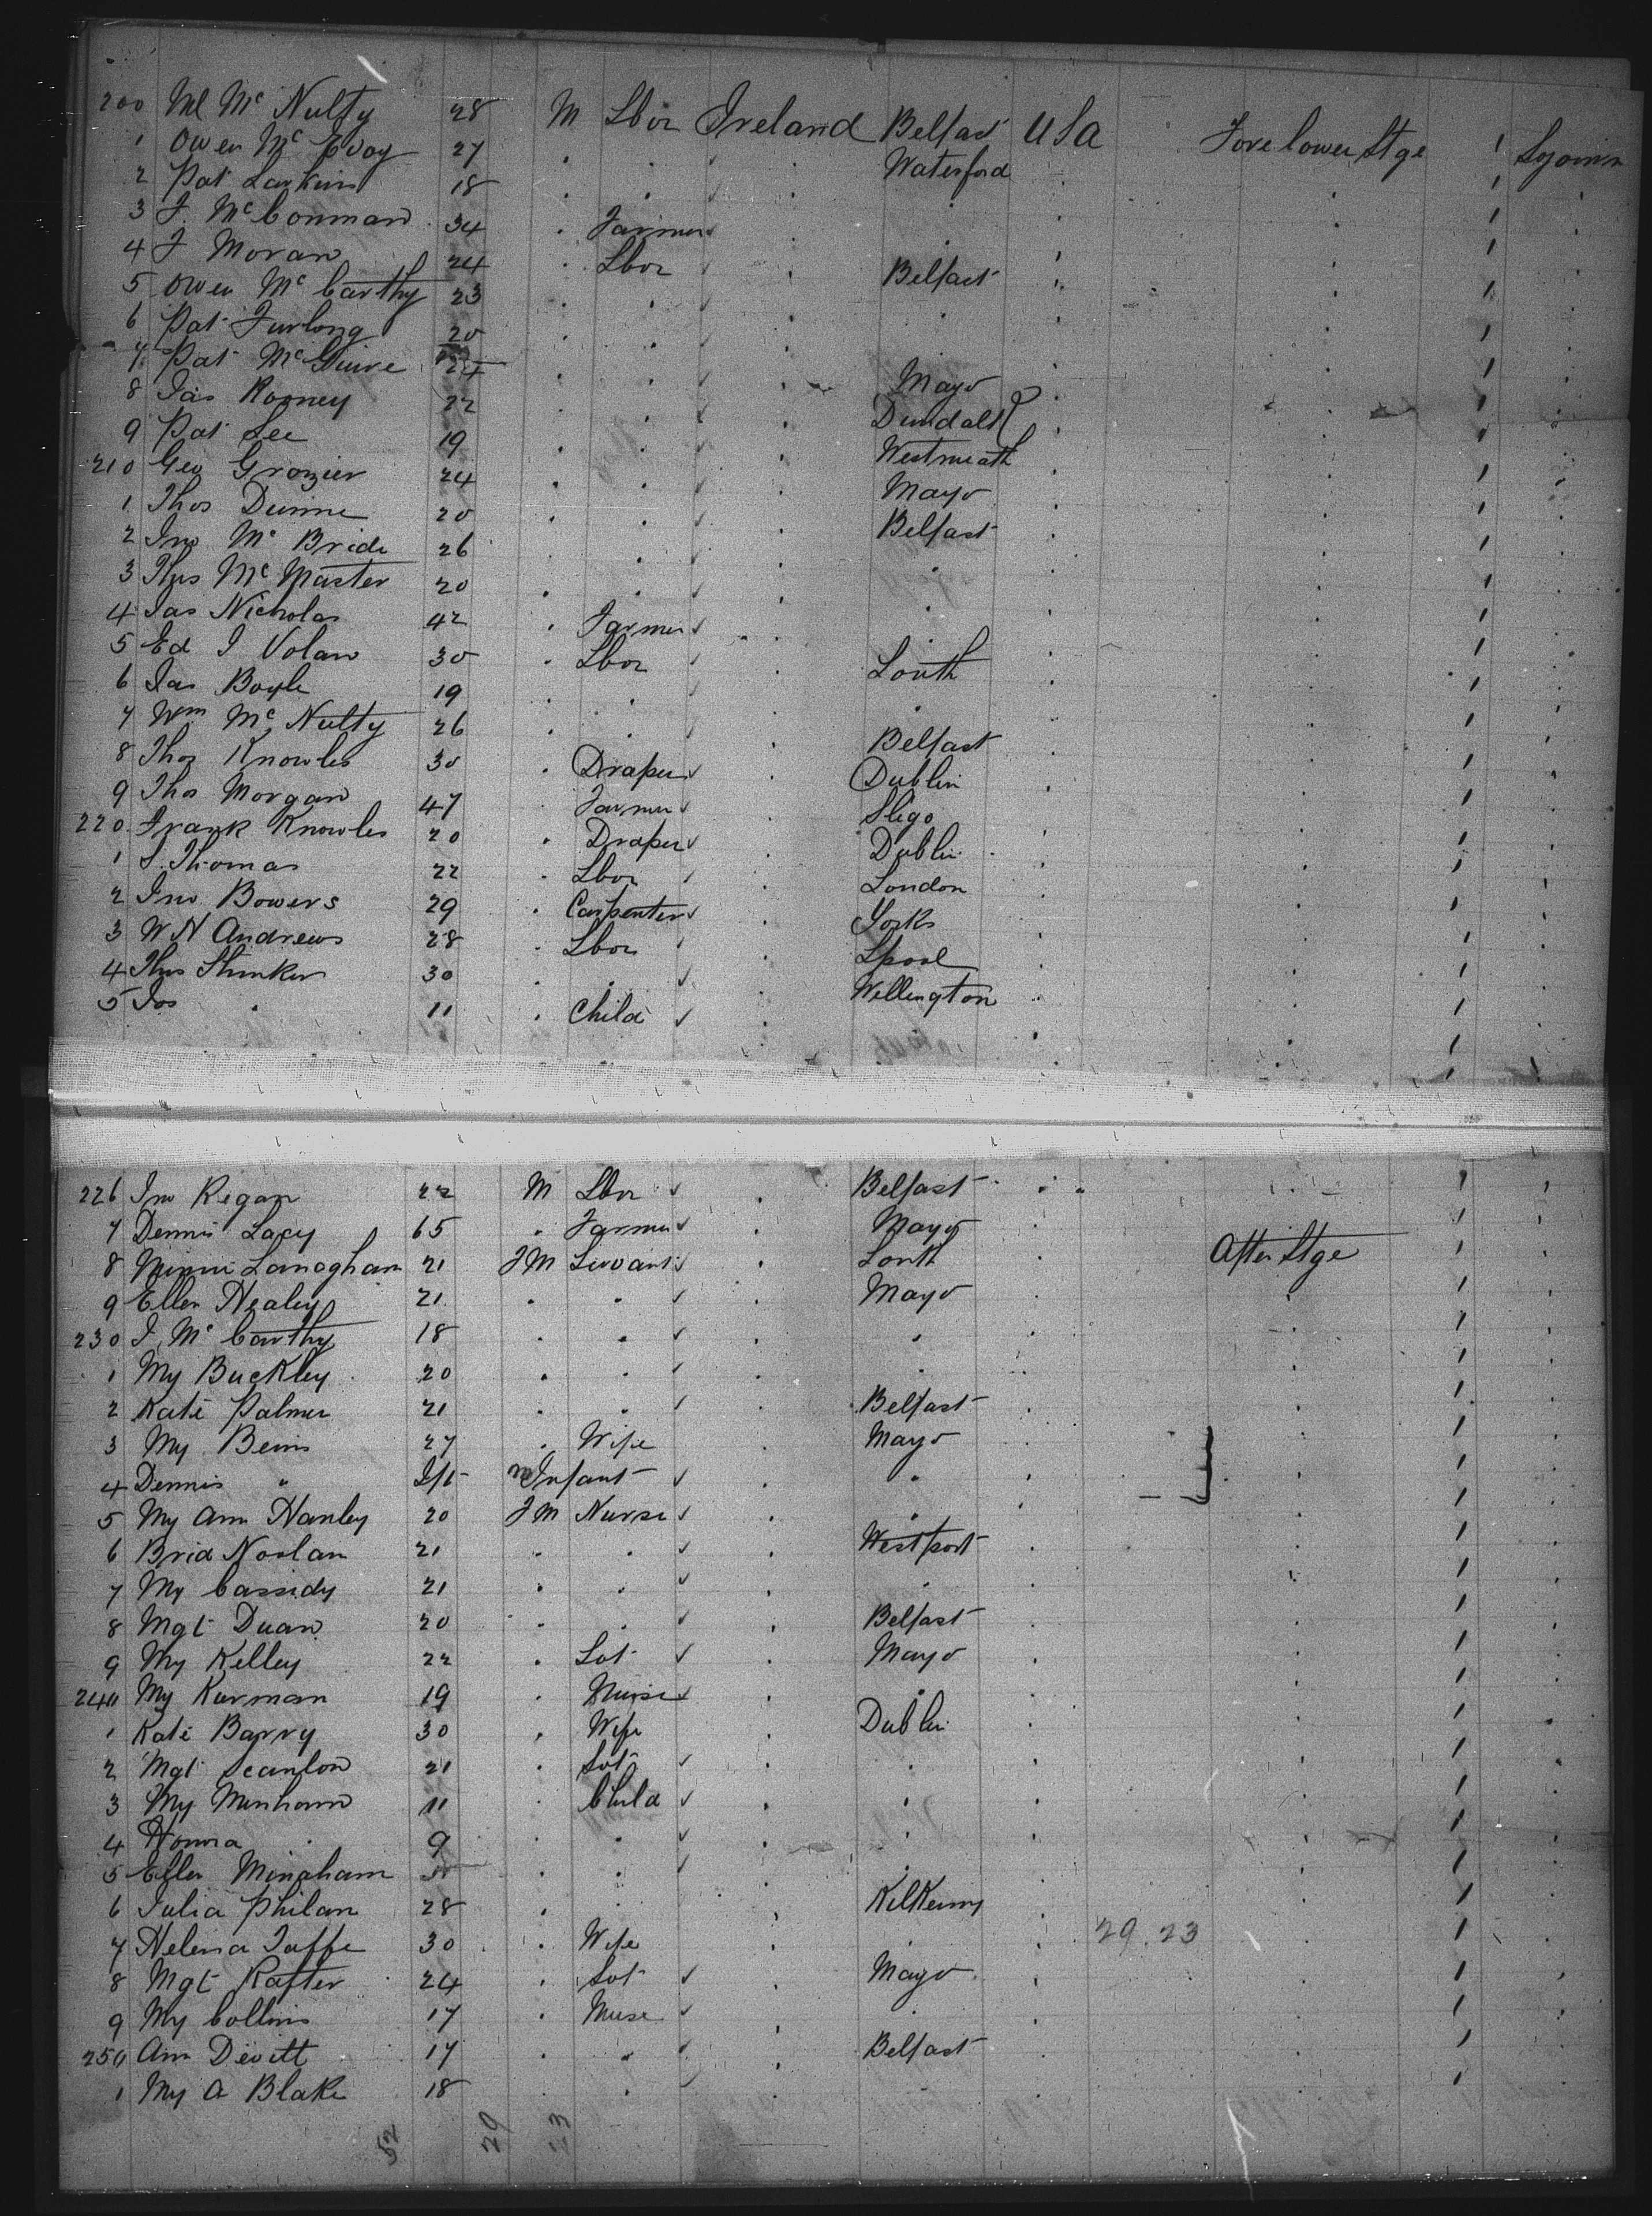 200 Ml Mc Nulty 28 M Lbor Ireland Belfast USA Fore lower Stge 1
1 Owen Mc Evoy 27 Waterford
2 Pat Larkin 18
3 J. McConman 34 Farmer
4 J Moran 24 Lbor Belfast
5 Owen Mc Carthy 23
6 Pat Furlong 20
7 Pat McGuire 24 Mayo
8 Jas Rooney 22 Dundalk
9 Pat Lee 19 Westmeath
210 Geo Grozier 24 Mayo
1 Thos Dunne 20 Belfast
2 Jno Mc Bride 26 "
3 Thos McMaster 20 "
4 Jas Nicholas 42 Farmer "
5 Ed J Nolan 30 Lbor Louth
6 Jas Boyle 19 "
7 Wm Mc Nulty 26 Belfast
8 Thos Knowles 30 Draper Dublin
9 Thos Morgan 47 Farmer Sligo
220 Frank Knowles 20 Draper Dublin
1 S. Thomas 22 Lbor London
2 Jno Bowers 29 Carpenter Yorks
3 W N Andrews 28 Lbor Lpool
4 Thos 30 " Wellington
5 Jos " 11 Child
226 Jno Regan 22 M Lbor Belfast
7 Dennis Lacy 65 " Farmer Mayo
8 Minnie Lanagham 21 FM Servant Louth After Stge
9 Ellen Healey 21 " " Mayo
230 J. Mc Carthy 18 " " "
1 My Buckley 20 " " "
2 Kate Palmer 21 " " Belfast
3 My Beins 27 " Wife Mayo
4 Dennis " Inft m Infant "
5 My Ann Hanley 20 FM Nurse "
6 Brid Noolan 21 " " Westport
7 My Cassidy 21 " " "
8 Mgt Duan 20 " " Belfast
9 My Kelley 22 " Svt Mayo
240 My Kurman 19 " Nurse "
1 Kate Barry 30 " Wife Dublin
2 Mgt Scanlon 21 " Svt "
3 My Minham 11 " Child "
4 Honora " 9 " " "
5 Ellen Mingham " " "
6 Julia Philan 28 " Kilkenny
7 Helena Taffe 30 " Wife " 29.23
8 Mgt Rafter 24 " Svt Mayo
9 My Collins 17 " Nurse "
250 Ann Devitt 17 " " Belfast
1 My A Blake 18 " "
52 29 23